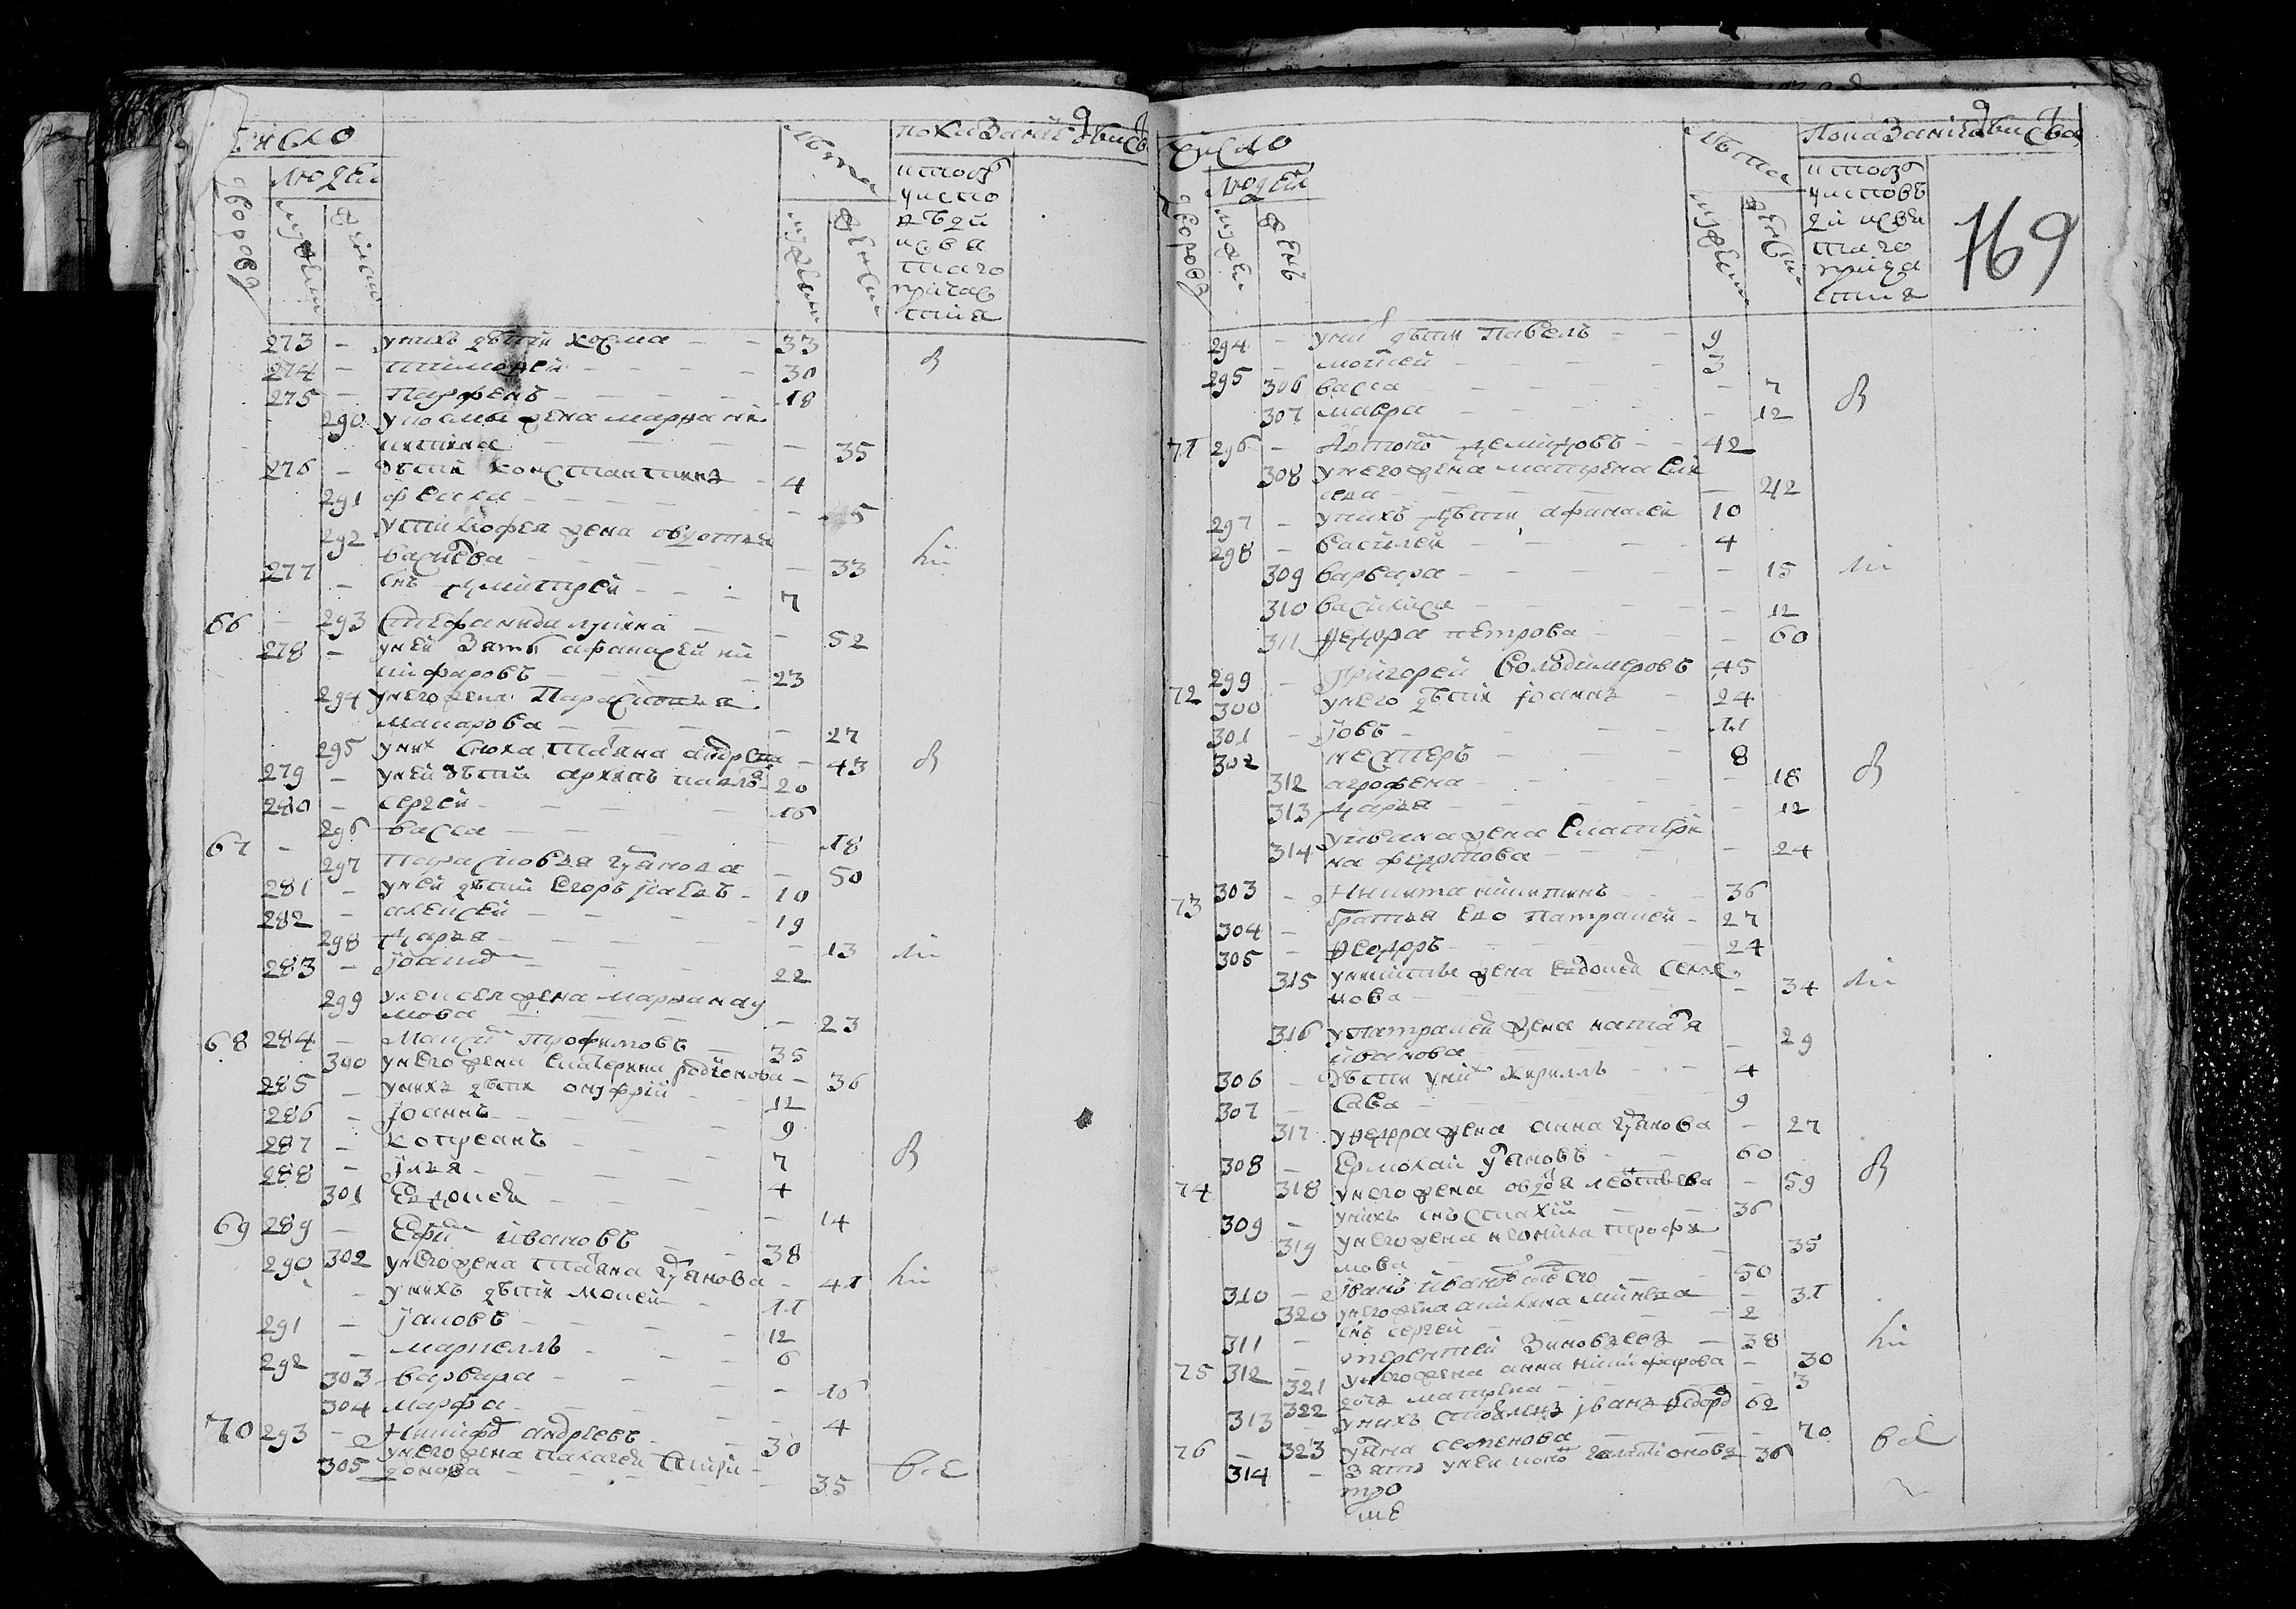 Число
Людей
дворовъ
мужеска
женска
Лѣта
мужеска
женска
показание действа
кто из
у испо
вѣди
и свя
таго
причас
тия
273 - у нихъ дѣти козма - - 33
274 - тимофей - - - 30
275 - Парфенъ - - - 18
290 у козмы жена мариа ни
китина - - - 35
276 - дѣти константинъ - 4
291 фекла - - - 15
292 у тимофея жена авдотья
варисва - - - 33
277 - снъ дмитрей - - - 7
66 - 293 Стефанида лукина - - 52
278 - у ней зять афанасей ни
кифаровъ - - - 23
294 у него жена Парасковья
макарова - - - 27
295 у них сноха татияна андреева - 43
279 - у ней дѣти архипъ павловъ 20
280 - сергей - - - 16
296 васса - - - 18
67 - 297 Парасковья гурянова - 50
281 - у ней дѣти Егоръ - 10
282 - алексей - - - 19
298 дарья - - - 13
283 - иоаннъ - - - 22
299 у алексея жена мариа нау
мова - - - 23
68 284 - Максим трофимовъ - 35
300 у него жена екатерина родионова - 36
285 - у нихъ дѣти онуфрий - 12
286 - иоаннъ - - - 9
287 - коприанъ - - - 7
288 - илья - - - 4
301 Евдокея - - - 14
69 289 - Ефим ивановъ - - 38
302 у него жена татияна гурянова - 41
290 - у нихъ дѣти мокей - 11
291 - іаковъ - - - 12
292 - маркеллъ - - - 6
303 варвара - - - 16
304 марфа - - - 4
70 293 - Никифоръ андреевъ - 30
305 у него жена палагея спири
донова - - - 35
Число
Людей
дворовъ
мужеска
женска
Лѣта
мужеска
женска
Показание действа
кто из
у исповѣ
ди и свя
таго
прича
стия
169
294 - у них дѣти Павелъ - 9
295 - мойсей - - - 3
306 васса - - - 7
307 мавра - - - 12
71 296 - Антонъ демидовъ - - 42
308 у него жена матрена ели
сева - - - 42
297 - у нихъ дѣти афанасей 10
298 - василей - - - 4
309 варвара - - - 15
310 василиса - - - 12
311 федора петрова - - 60
72 299 - Григорей володимеровъ 45
300 - у него дѣти иоаннъ - 24
301 - іовъ - - - 11
302 - нестеръ - - - 8
312 агрофена - - - 18
313 дарья - - - 12
314 у ивана жена екатери
на федотова - - 24
73 303 - Никита никитинъ - - 36
304 - братья его патракей - 27
305 - Феодоръ - - - 24
315 у никиты жена евдокея семе
нова - - - 34
316 у патракея жена наталия
иванова - - - 29
306 - дѣти у них кириллъ - 4
307 - Сава - - - 9
317 у федора жена анна гурянова - 27
74 308 - Ермолай гуряновъ - 60
318 у него жена авдотя леонтьева - 59
309 - у нихъ снъ стахий - 36
319 у него жена неонила трофи
мова - - - 35
310 - иванъ ивановъ - 50
320 у него жена акилина - 31
311 - снъ сергей - - 2
75 312 - терентей зиновьевъ - 38
321 у него жена анна никифорова - 30
322 дочь матрена - - 3
313 - у нихъ иванъ федоровъ 62
76 - 323 уляна семенова - - 70
314 - зять у ней галактионовъ 36